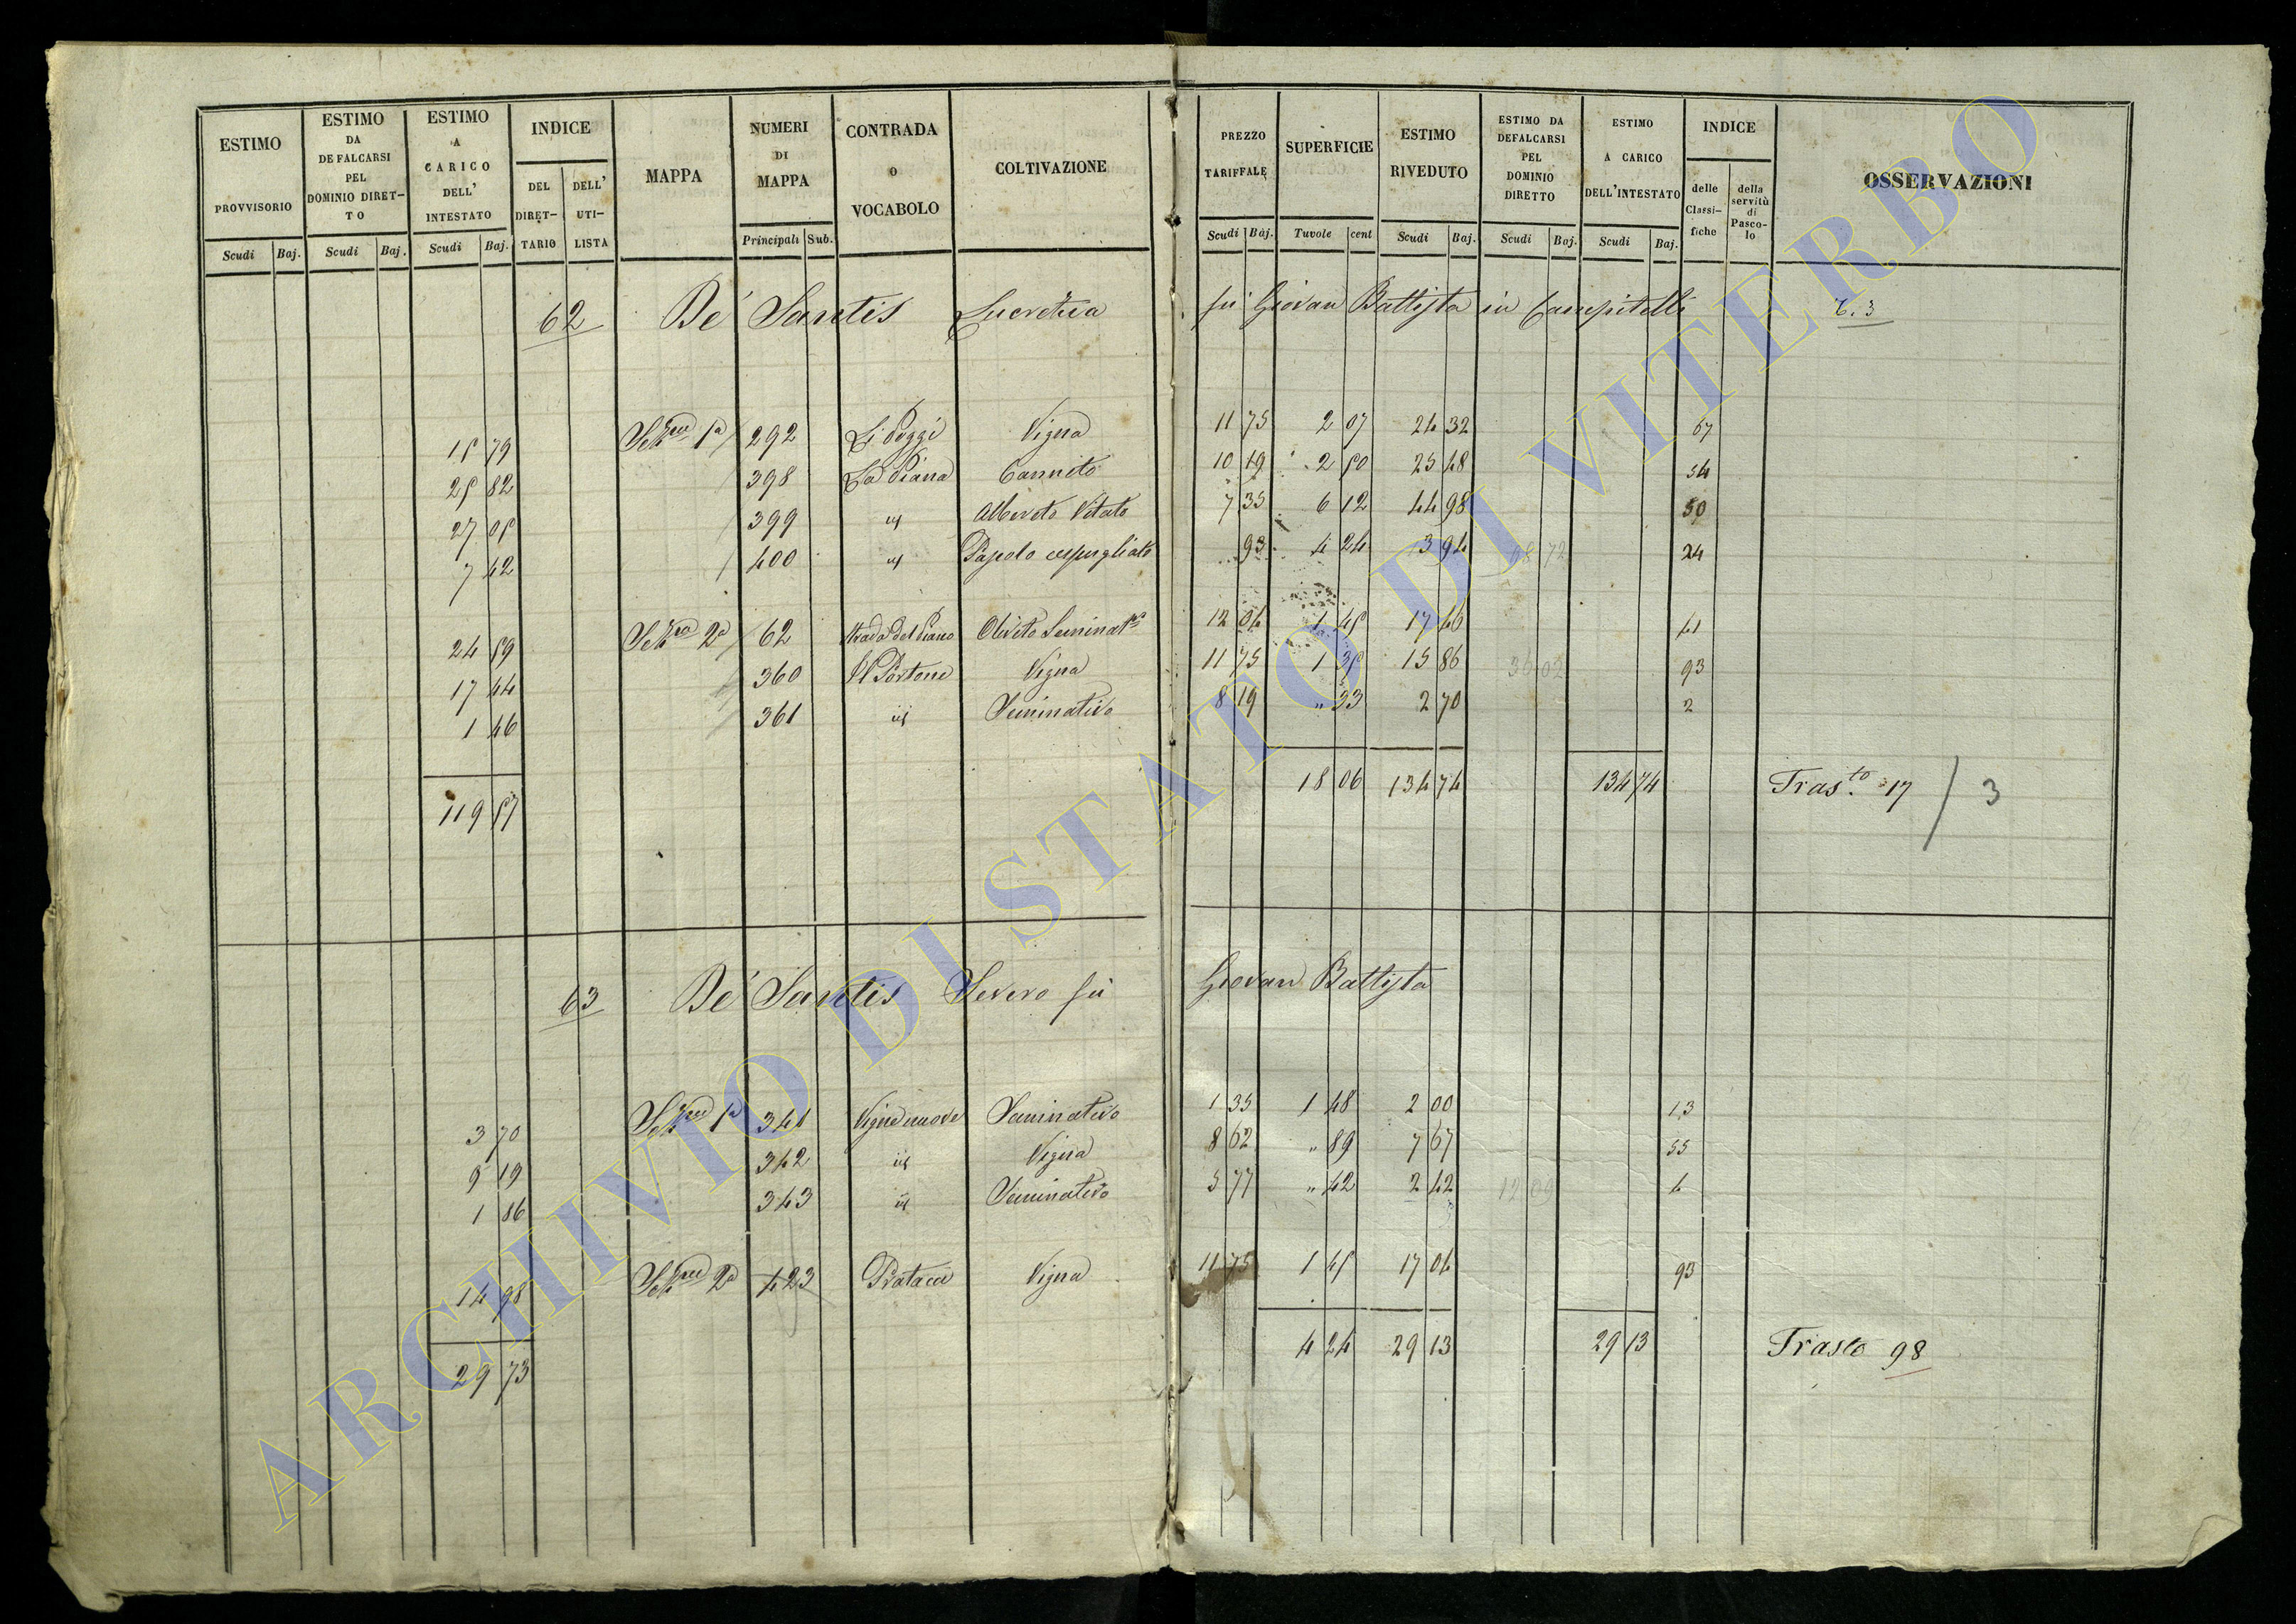 ESTIMO PROVVISORIO Scudi Baj.
ESTIMO DA DEFALCARSI PEL DOMINIO DIRET-TO Scudi Baj.
ESTIMO A CARICO DELL' INTESTATO Scudi Baj.
INDICE DEL DIRET-TARIO DELL' UTI-LISTA
MAPPA
NUMERI DI MAPPA Principali Sub.
CONTRADA O VOCABOLO
COLTIVAZIONE
PREZZO TARIFFALE Scudi Baj.
SUPERFICIE Tavole cent
ESTIMO RIVEDUTO Scudi Baj.
ESTIMO DA DEFALCARSI PEL DOMINIO DIRETTO Scudi Baj.
ESTIMO A CARICO DELL'INTESTATO Scudi Baj.
INDICE delle Classi-fiche della servitù di Pasco-lo
OSSERVAZIONI
62 De' Santis Lucrezia fu Giovan Battista in Campitelli
15 79 292 Li Poggi Vigna 11 75 2 07 24 32 67
25 82 398 La Piana Canneto 10 19 2 50 25 48 54
27 05 399 id Albereto Vitato 7 35 6 12 44 98 50
7 42 400 id Pascolo cespugliato 93 4 24 3 94 68 72 24
24 59 62 Strada del Piano Oliveto Seminat.vo 12 04 1 45 17 46 41
17 44 360 Il Portone Vigna 11 75 1 35 15 86 93
1 46 361 id Seminativo 8 19 " 33 2 70 2
119 57 18 06 134 74 134 74 Tras.to 17 / 3
63 De' Santis Severo fu Giovan Battista
3 70 341 Vigne nuove Seminativo 1 35 1 48 2 00 13
9 19 342 id Vigna 8 62 " 89 7 67 55
1 86 343 id Seminativo 5 77 " 42 2 42 12 09 4
14 98 423 Vigna 11 75 1 45 17 04 93
29 73 4 24 29 13 29 13 Trasto 98
ARCHIVIO DI STATO DI VITERBO